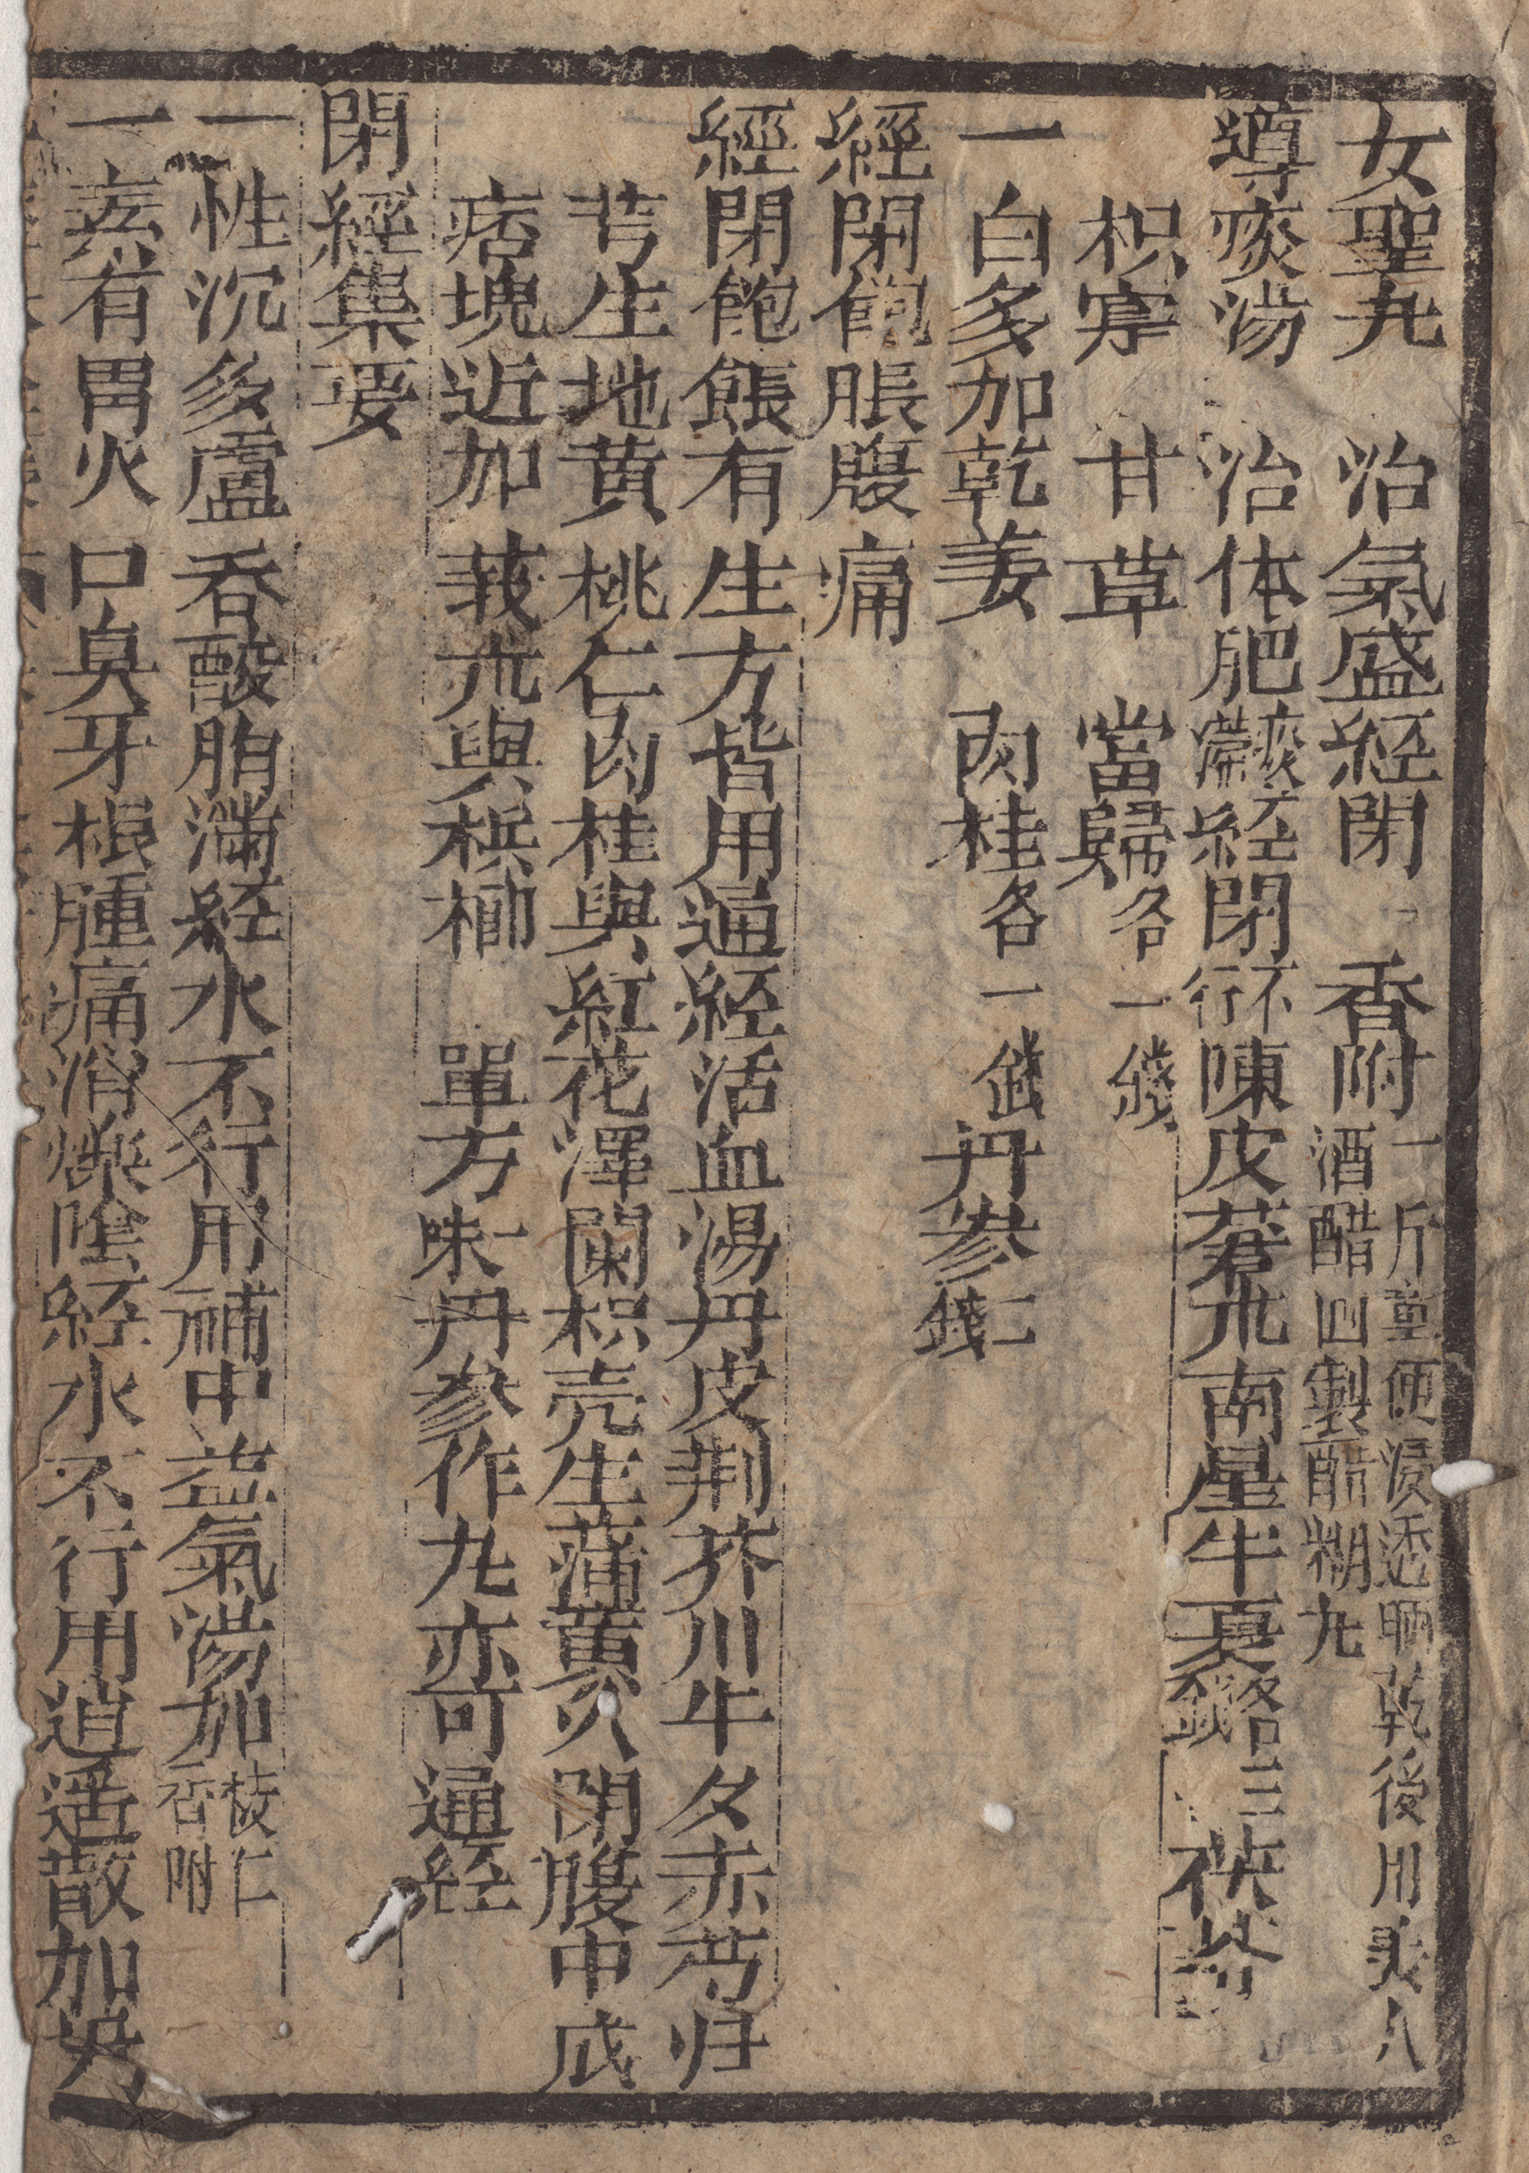 女聖丸　治氣盛經閉　香附一斤童便浸透晒乾後用
酒醋四製醋糊丸
導痰湯　治体肥痰滯経閉不行陳皮蒼朮南星半夏各三錢茯苓
枳實　甘草　當歸各一錢
一白多加乾姜　肉桂各一錢丹參二錢
經閉飽脹腹痛
經閉飽餦有生方皆用通経活血湯丹皮荆芥川牛夕赤芍归
芎生地黄桃仁肉桂與紅花澤蘭枳壳生蒲黄閉腹中成
痞塊近加莪朮與槟榔　單方一味丹參作丸亦可通経
閉經集要
一性沉多慮呑酸胷滿経水不行用補中益氣湯加枝仁香附
一素有胃火口臭牙根腫痛消爍陰経水不行用逍遥散加